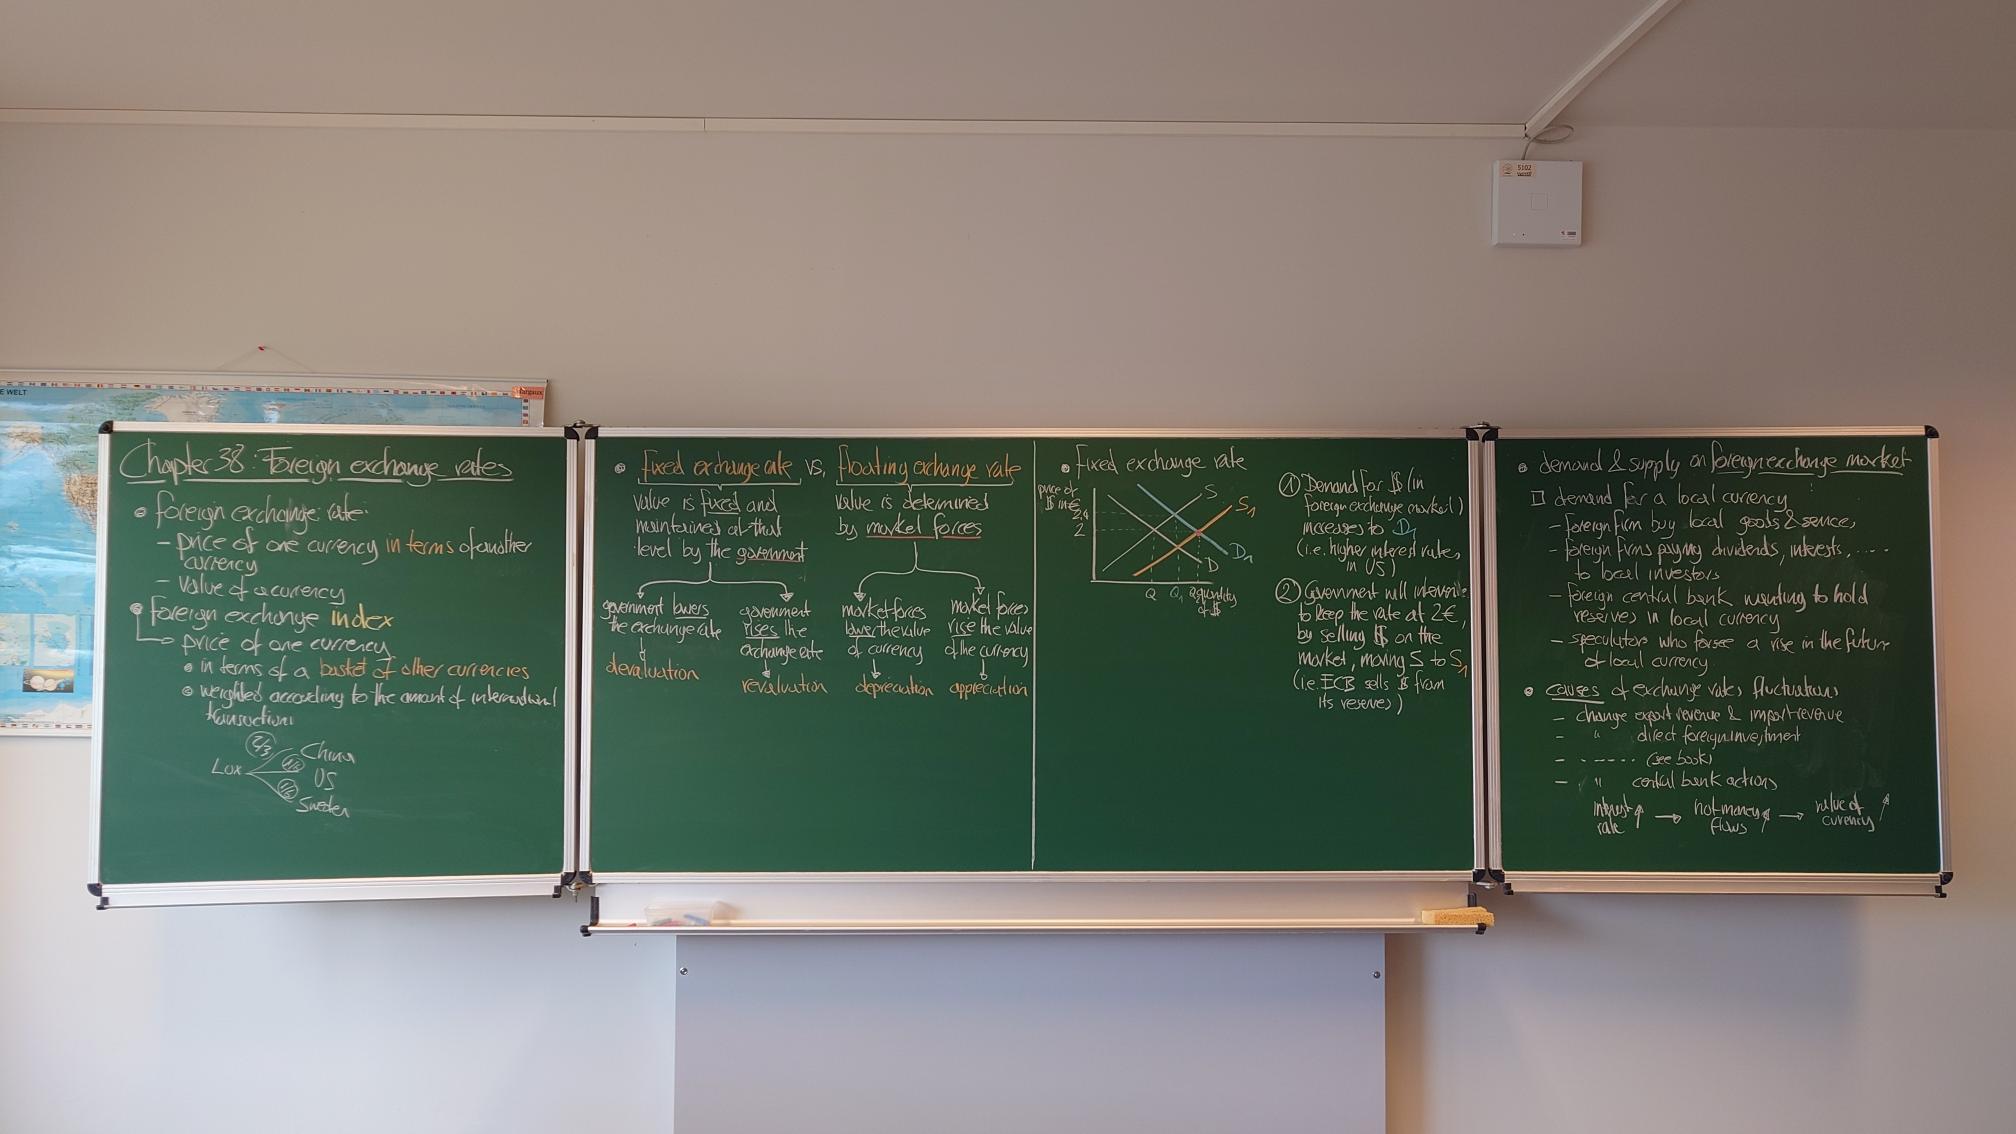 E WELT
5102
Chapter 38: Foreign exchange rates
foreign exchange rate:
- price of one currency in terms of another
currency
- value of a currency
foreign exchange index
price of one currency
in terms of a basket of other currencies
weighted according to the amount of international
transactions
2/3 China
Lux US
Sweden
fixed exchange rate vs. floating exchange rate
value is fixed and
maintained at that
level by the government
government lowers
the exchange rate
devaluation
government
rises the
exchange rate
revaluation
value is determined
by market forces
market forces
lower the value
of currency
depreciation
market forces
rise the value
of the currency
appreciation
fixed exchange rate
price of
$ in €
2,4
2
S
S1
D1
D
Q Q1 Q2
quantity
of $
① Demand for $ (in
foreign exchange market)
increases to D1
(i.e. higher interest rates
in US)
② Government will intervene
to keep the rate at 2€,
by selling $ on the
market, moving S to S1
(i.e. ECB sells $ from
its reserves)
demand & supply on foreign exchange market
demand for a local currency
- foreign firm buy local goods & services
- foreign firms paying dividends, interests, ....
to local investors
- foreign central bank wanting to hold
reserves in local currency
- speculators who forsee a rise in the future
of local currency
causes of exchange rates fluctuations
- change export revenue & import revenue
- " direct foreign investment
- ------ (see book)
- " central bank actions
interest
rate ↑ → hot money
flows ↑ → value of
currency ↑